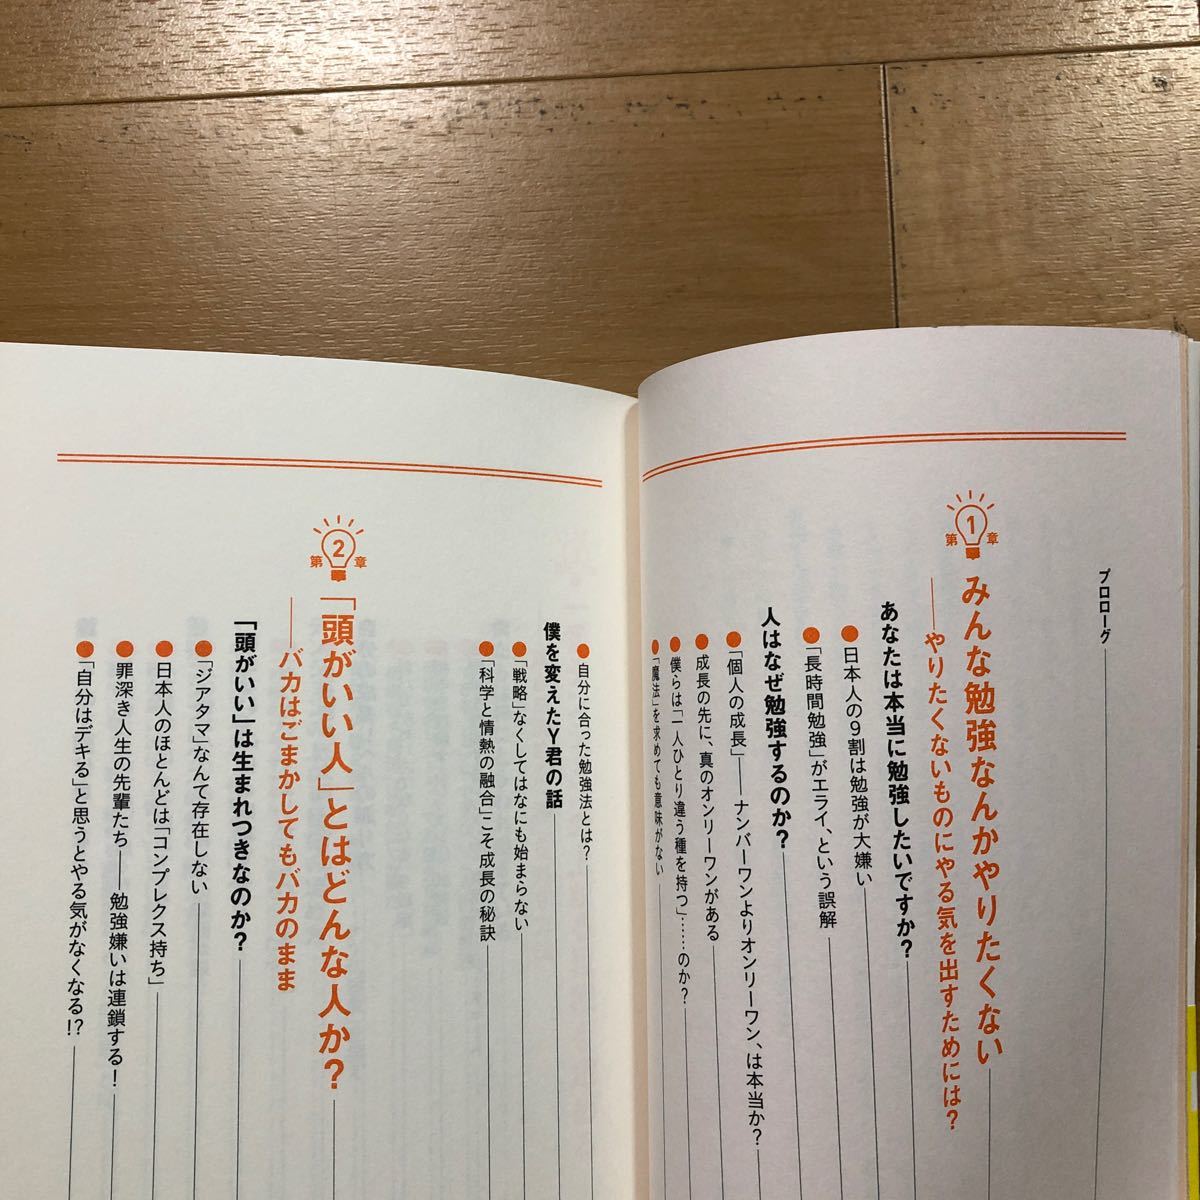 プロローグ
第1章
みんな勉強なんかやりたくない
——やりたくないものにやる気を出すためには？
あなたは本当に勉強したいですか？
●日本人の9割は勉強が大嫌い
●「長時間勉強」がエライ、という誤解
人はなぜ勉強するのか？
●「個人の成長」——ナンバーワンよりオンリーワン、は本当か？
●成長の先に、真のオンリーワンがある
●僕らは「一人ひとり違う種を持つ」……のか？
●「魔法」を求めても意味がない
●自分に合った勉強法とは？
僕を変えたY君の話
●「戦略」なくしてはなにも始まらない
●「科学と情熱の融合」こそ成長の秘訣
第2章
「頭がいい人」とはどんな人か？
——バカはごまかしてもバカのまま
「頭がいい」は生まれつきなのか？
●「ジアタマ」なんて存在しない
●日本人のほとんどは「コンプレクス持ち」
●罪深き人生の先輩たち——勉強嫌いは連鎖する！
●「自分はデキる」と思うとやる気がなくなる!?